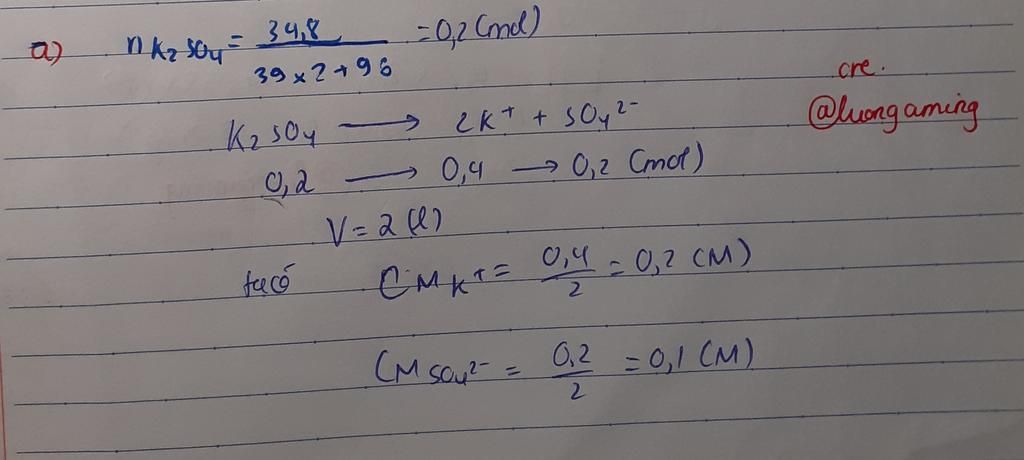 a) nK2SO4 = 34,8 / 39x2+96 = 0,2 (mol)
cre.
@luongaming
K2SO4 → 2K+ + SO4 2-
0,2 → 0,4 → 0,2 (mol)
V = 2 (l)
ta có CM K+ = 0,4 / 2 = 0,2 (M)
CM SO4 2- = 0,2 / 2 = 0,1 (M)